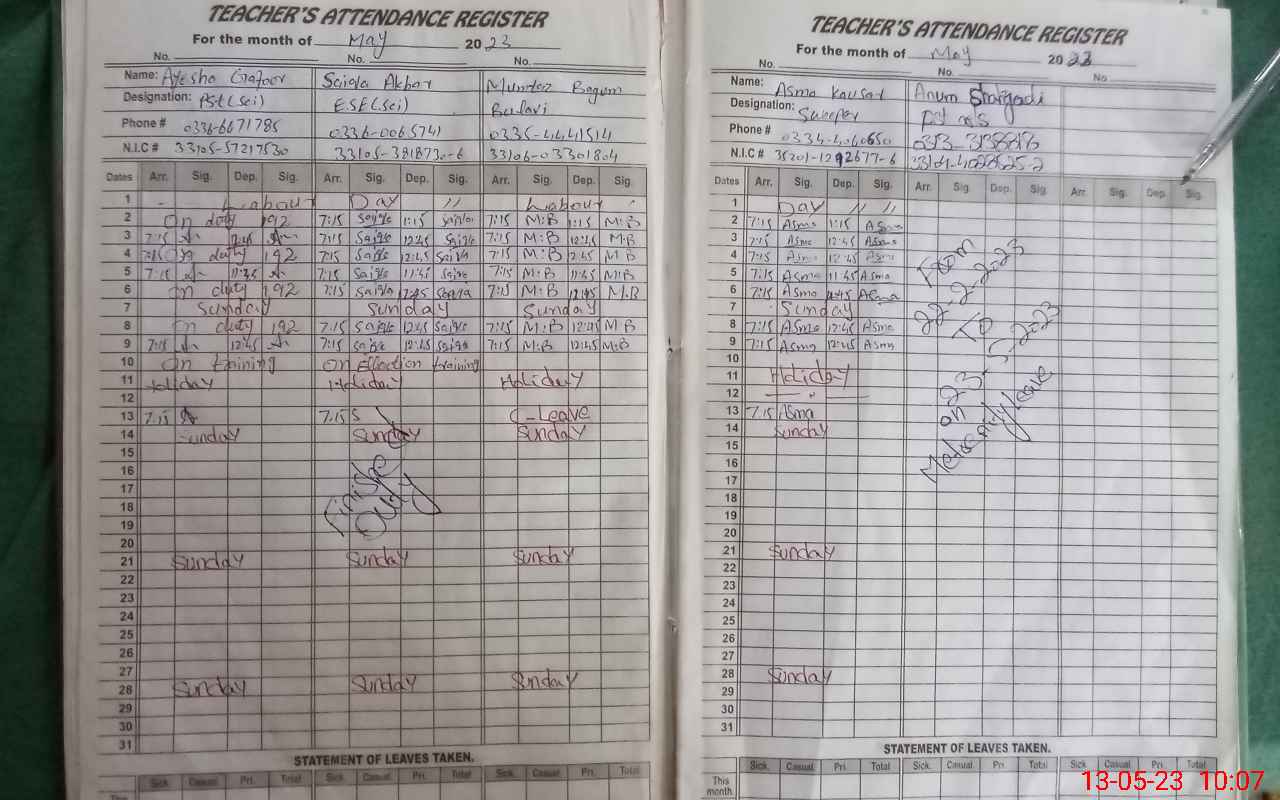 TEACHER'S ATTENDANCE REGISTER
For the month of May 2023
No. No. No.
Name: Ayesha Gafoor Saiqla Akbar Mumtaz Begum
Designation: Pst(Sci) ESE(Sci)
Phone # 0336-6671785 0336-0065741 0335-4441514
N.I.C # 33105-57217530 33105-3818730-6 33106-03301804
Dates Arr. Sig. Dep. Sig. Arr. Sig. Dep. Sig. Arr. Sig. Dep. Sig.
1 Labour Day // Labour
2 On duty 192 7:15 Saiqla 1:15 Saiqla 7:15 M:B 1:15 M:B
3 7:15 12:45 7:15 Saiqla 12:45 Saiqla 7:15 M:B 12:45 M.B
4 7:15 On duty 192 7:15 Saiqla 12:45 Saiqla 7:15 M:B 12:45 M B
5 7:15 11:45 7:15 Saiqla 11:45 Saiqla 7:15 M:B 11:45 M:B
6 On duty 192 7:15 Saiqla 12:45 Saiqla 7:15 M:B 12:45 M.B
7 Sunday Sunday Sunday
8 On duty 192 7:15 Saiqla 12:45 Saiqla 7:15 M:B 12:45 M B
9 7:15 12:45 7:15 Saiqla 12:45 Saiqla 7:15 M:B 12:45 M:B
10 On training On Ellection training
11 Holiday Holiday Holiday
12
13 7:15 7:15 S C-Leave
14 Sunday Sunday Sunday
15
16
17
18
19
Finishe Duty
20
21 Sunday Sunday Sunday
22
23
24
25
26
27
28 Sunday Sunday Sunday
29
30
31
STATEMENT OF LEAVES TAKEN.
Sick. Casual Pri. Total Sick. Casual Pri. Total Sick. Casual Pri. Total
TEACHER'S ATTENDANCE REGISTER
For the month of May 2023
No. No. No
Name: Asma Kausar Anum
Designation: Sweeper
Phone # 0334-4060650
N.I.C # 35201-1292677-6
Dates Arr. Sig. Dep. Sig. Arr. Sig. Dep. Sig. Arr. Sig. Dep. Sig.
1 Day // //
2 7:15 Asma 1:15 Asma
3 7:15 Asma 12:45 Asma
4 7:15 Asma 12:45 Asma
5 7:15 Asma 11 45 Asma
6 7:15 Asma 12:45 Asma
7 Sunday
8 7:15 Asma 12:45 Asma
9 7:15 Asma 12:45 Asma
10
11 Holiday
12 — " —
13 7:15 Asma
14 Sunday
15
16
17
18
19
20
21 Sunday
22
23
24
25
26
27
28 Sunday
29
30
31
From
22-2-2023
To
23-5-2023
on
Metosenidy leave
STATEMENT OF LEAVES TAKEN.
Sick. Casual Pri. Total Sick. Casual Pri. Total Sick. Casual
This month
13-05-23 10:07